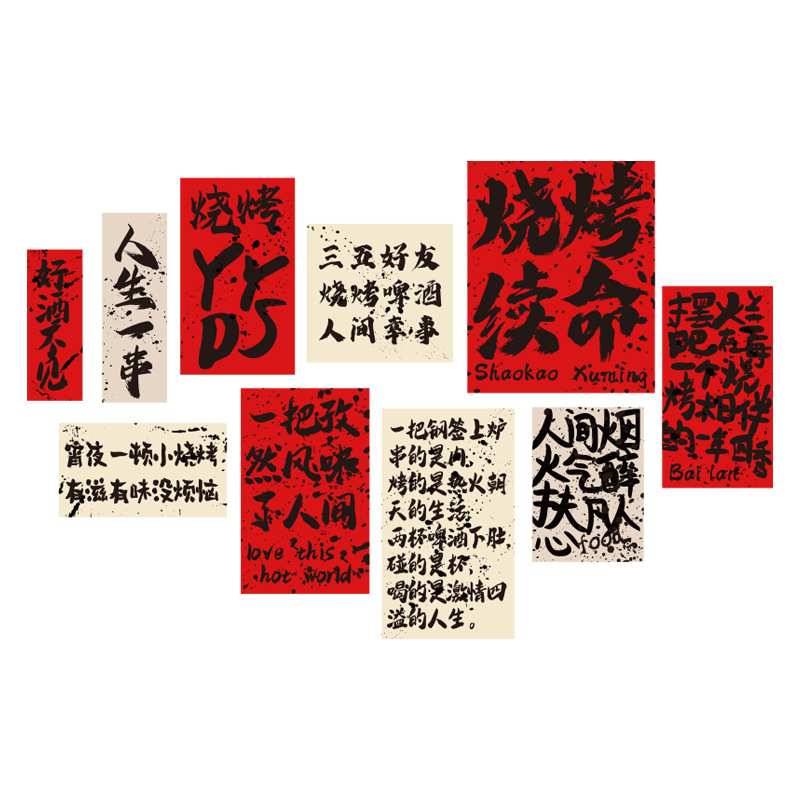 好酒不见
人生一串
烧烤
YY
DS
三五好友
烧烤啤酒
人间幸事
烧烤
续命
Shaokao Xuming
Bai lan
宵夜一顿小烧烤
有滋有味没烦恼
一把孜
然风味
了人间
love this,
hot world
一把钢签上炉
串的是肉,
烤的是热火朝
天的生活
两杯啤酒下肚,
碰的是杯,
喝的是激情四
溢的人生。
人间烟
火气醉
扶凡人
心food